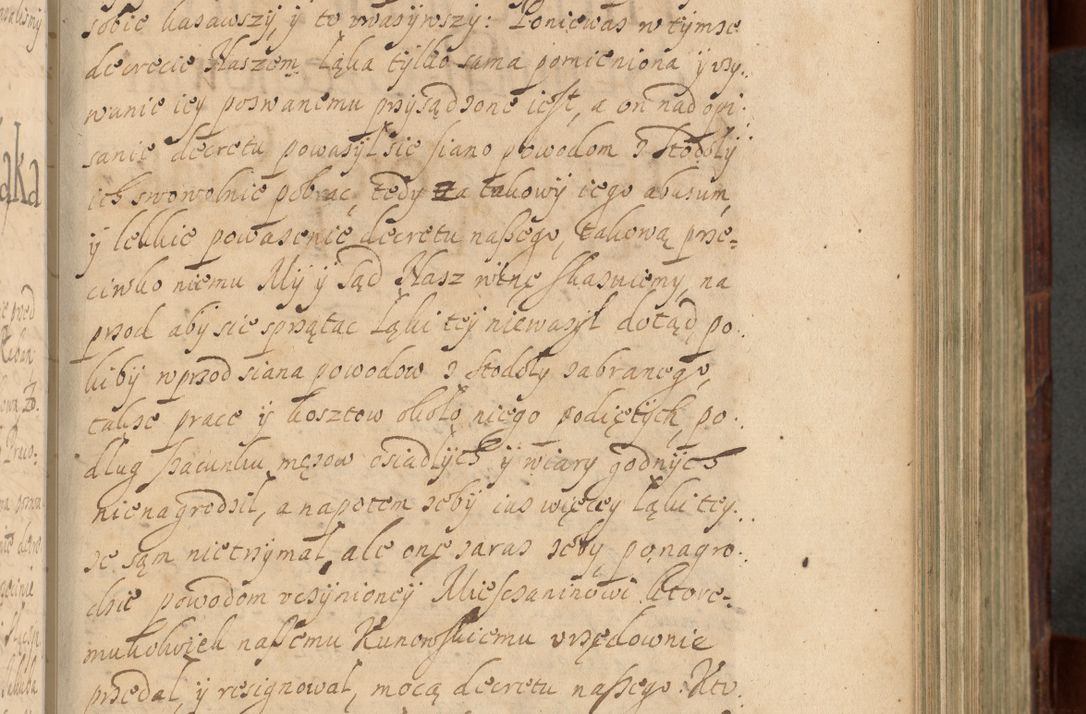 sobie kazawszy, y to vwazywszy: Poniewas w tymze
decrecie Naszem Łąka tylko sama pomieniona y vzy
wanie iey pozwanemu przysądzone iest, a on nad opi
sanie decretu powazył sie siano powodom z stodoły
ich swowolnie pobrac, tedy za takowy iego abusum,
y lekkie powazenie decretu naszego, takową prze-
ciwko niemu My y sąd Nasz winę skazuiemy, na
przod aby sie sprzątac Łąki tey niewazył dotąd po
kiby wprzod siana powodow z stodoły zabranego,
takze prace y kosztow około niego podiętych po
dług szacunku męzow osiadłych y wiary godnych
nienagrodzil, a napotem zeby iuz więcey łąki tey
ze sąm nietrzymał, ale onę zaraz zeby po nagro
dzie powodom vczynioney Miesczaninowi ktore-
mukolwiek naszemu Kunowskiemu vrzędownie
przedał, y resignował, mocą decretu naszego. Kto